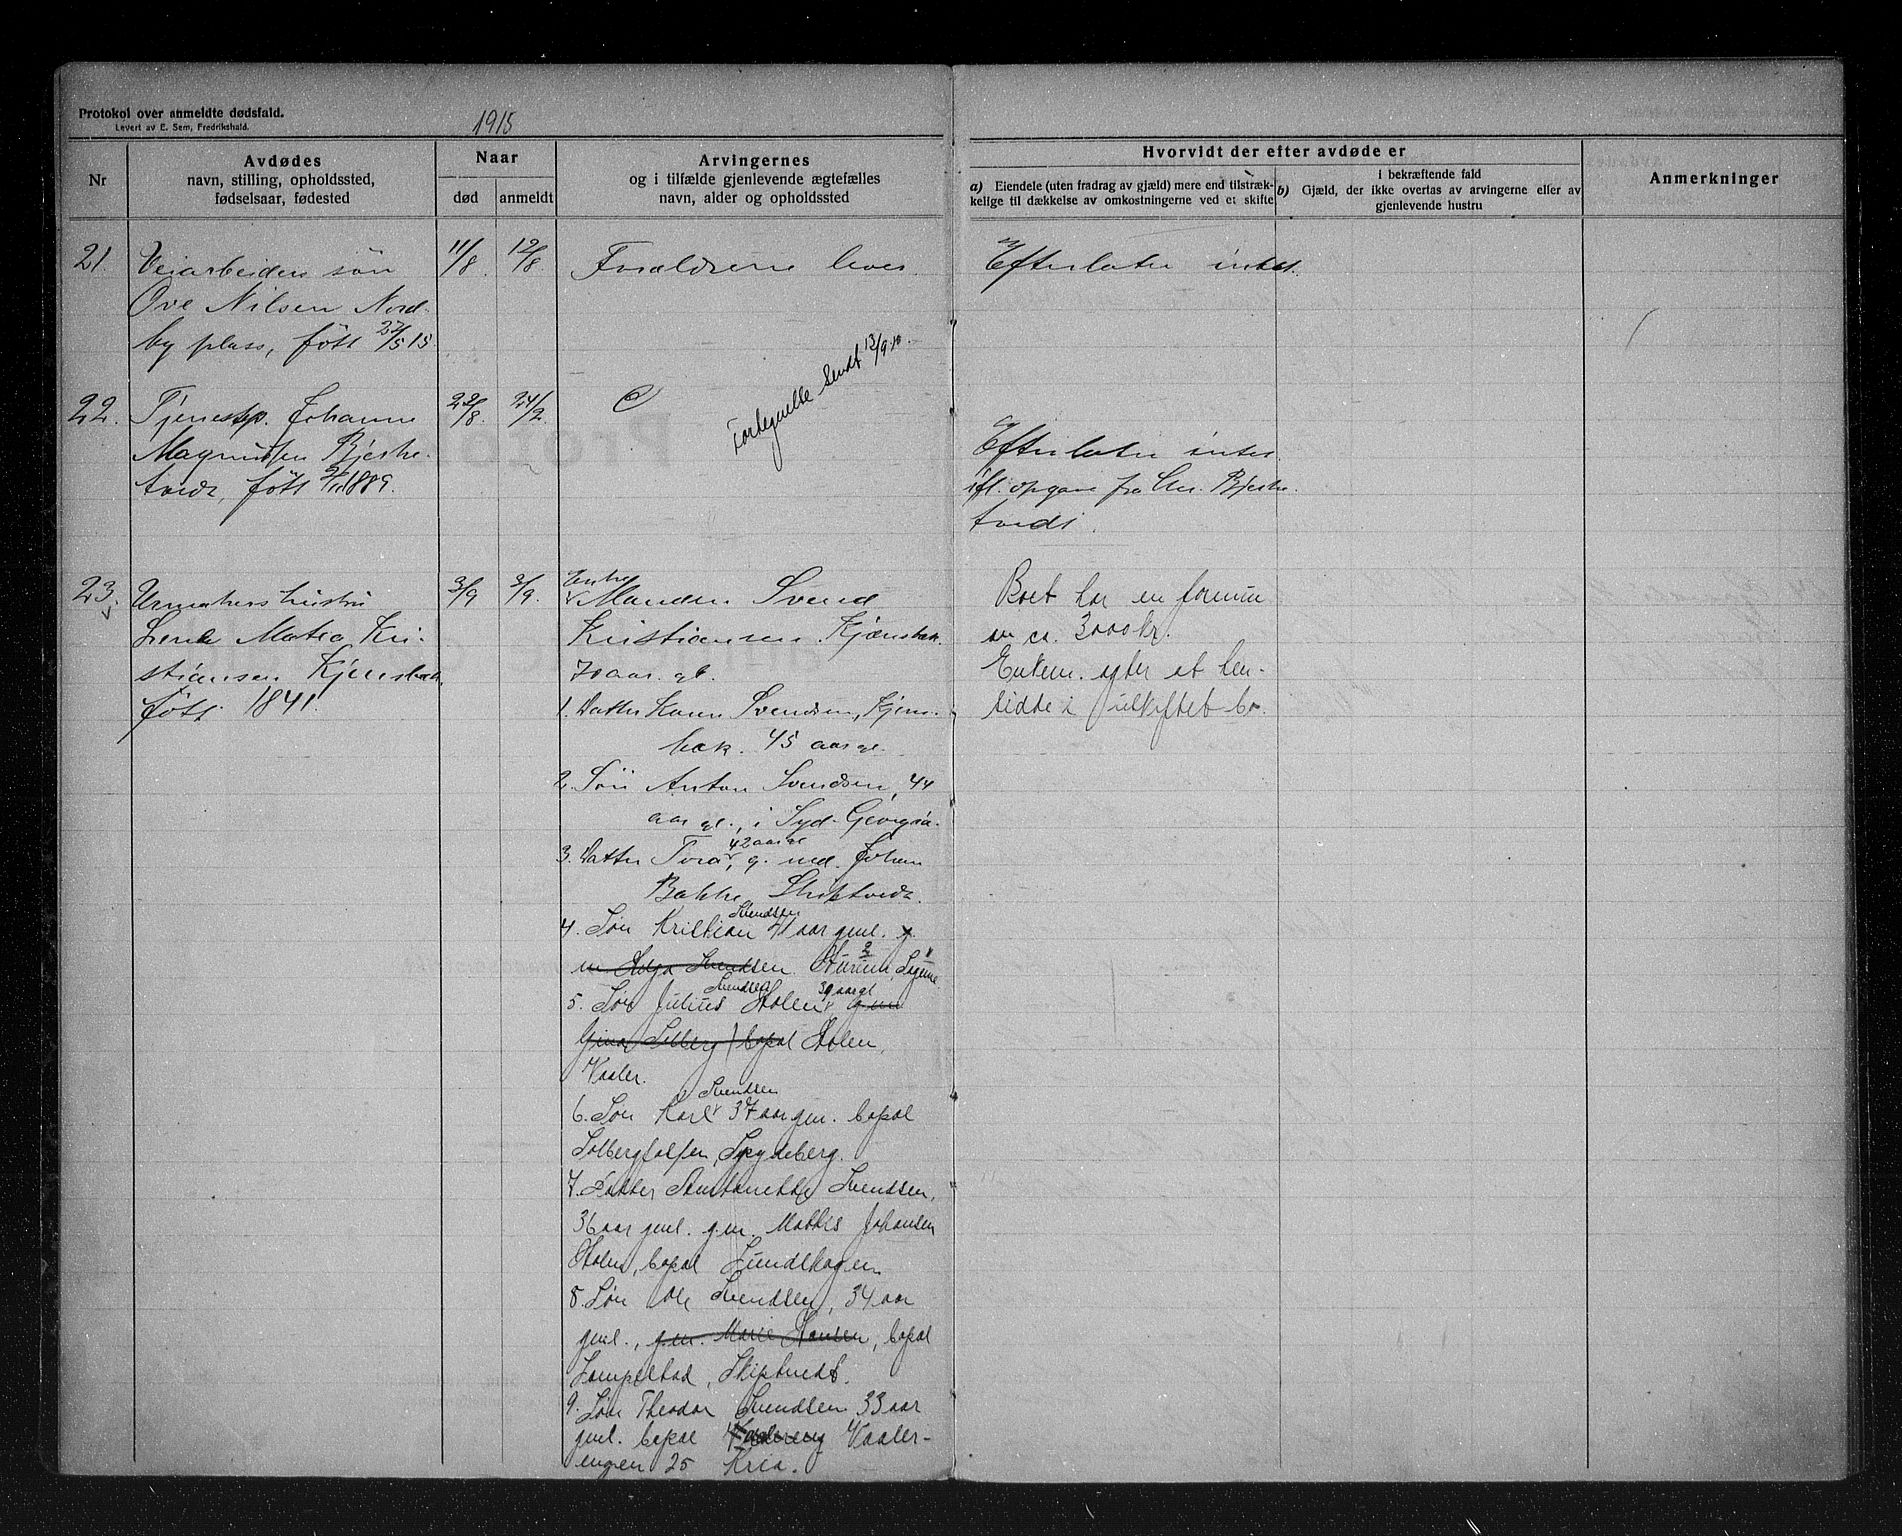 Protokol over anmeldte dødsfald.
Levert av E. Sem, Fredrikshald.
1915
Nr
Avdødes
navn, stilling, opholdssted,
fødselsaar, fødested
Naar
død
anmeldt
Arvingernes
og i tilfælde gjenlevende ægtefælles
navn, alder og opholdssted
Hvorvidt der efter avdøde er
a) Eiendele (uten fradrag av gjæld) mere end tilstræk-
kelige til dækkelse av omkostningerne ved et skifte
i bekræftende fald
b) Gjæld, der ikke overtas av arvingerne eller av
gjenlevende hustru
Anmerkninger
21. Veiarbeiders søn 11/8. 12/8. Forældrene lever. Efterlater intet.
Ove Nilsen Nord-
by plass, født 22/5 15.
Fortegnelse sendt 13/9
22. Tjenestep. Johanne 22/8. 24/2.
Magnussen Bjerke-
tvedt, født 1889.
Efterlater intet
ifl. opgave fra Chr. Bjerke-
tvedt.
23. Urmakers hustru 3/9 3/9. Enke
Manden Svend
Lene Matea Kri-
stiansen Kjensbæk,
født 1841.
Kristiansen Kjænsbæk
70 aar. gl.
Boet har en formue
av ca. 3000 kr.
Enkem. agter at hen-
sidde i uskiftet bo.
1. Datter Svendsen, Kjens-
bæk. 45 aar gl.
2. Søn Anton Svendsen, 44
aar gl., i Syd-Georgia.
42 aar gl
3. Datter Tora, g. med Johan
Bakke Skiptvedt.
Svendsen
4. Søn Kristian 41 aar gml. g.
m. Helga Svendsen.
Svendsen 39 aar gl
5. Søn Julius Holen g.m.
Gina Solberg, bopæl Holen,
Vaaler.
Svendsen
6. Søn Karl 37 aar gm. bopæl
Solbergfossen, Spydeberg.
7. Datter Antonette Svendsen,
36 aar gml. g.m. Mathis Johansen
Holen, bopæl Lundshagen
8. Søn Ole Svendsen, 34 aar
gml., g.m. Marie Hansen, bopæl
Lempelstad, Skiptvedt.
9. Søn Theodor Svendsen 33 aar
gml. bopæl Vaaler-
engen 25 Kria.